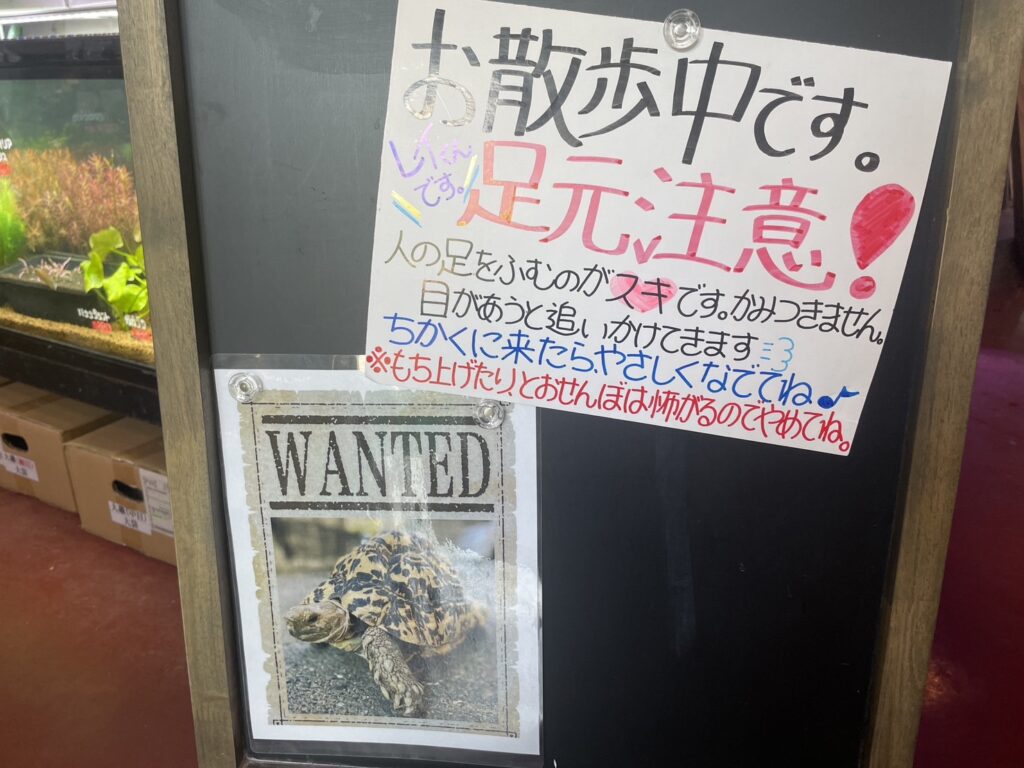 お散歩中です。
レイくん
です。
足元注意!
人の足をふむのがスキです。かみつきません。
目があうと追いかけてきます
ちかくに来たらやさしくなでてね♪
※もち上げたり、とおせんぼは怖がるのでやめてね。
WANTED